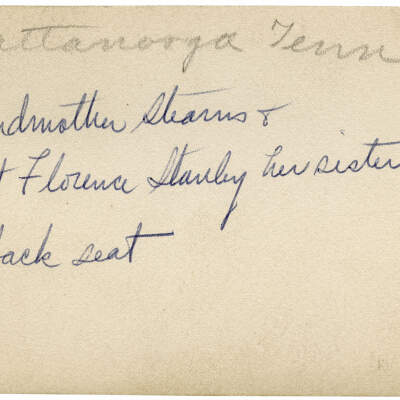 attanooga Tenn
ndmother Stearns &
t Florence Stanley her sister
back seat